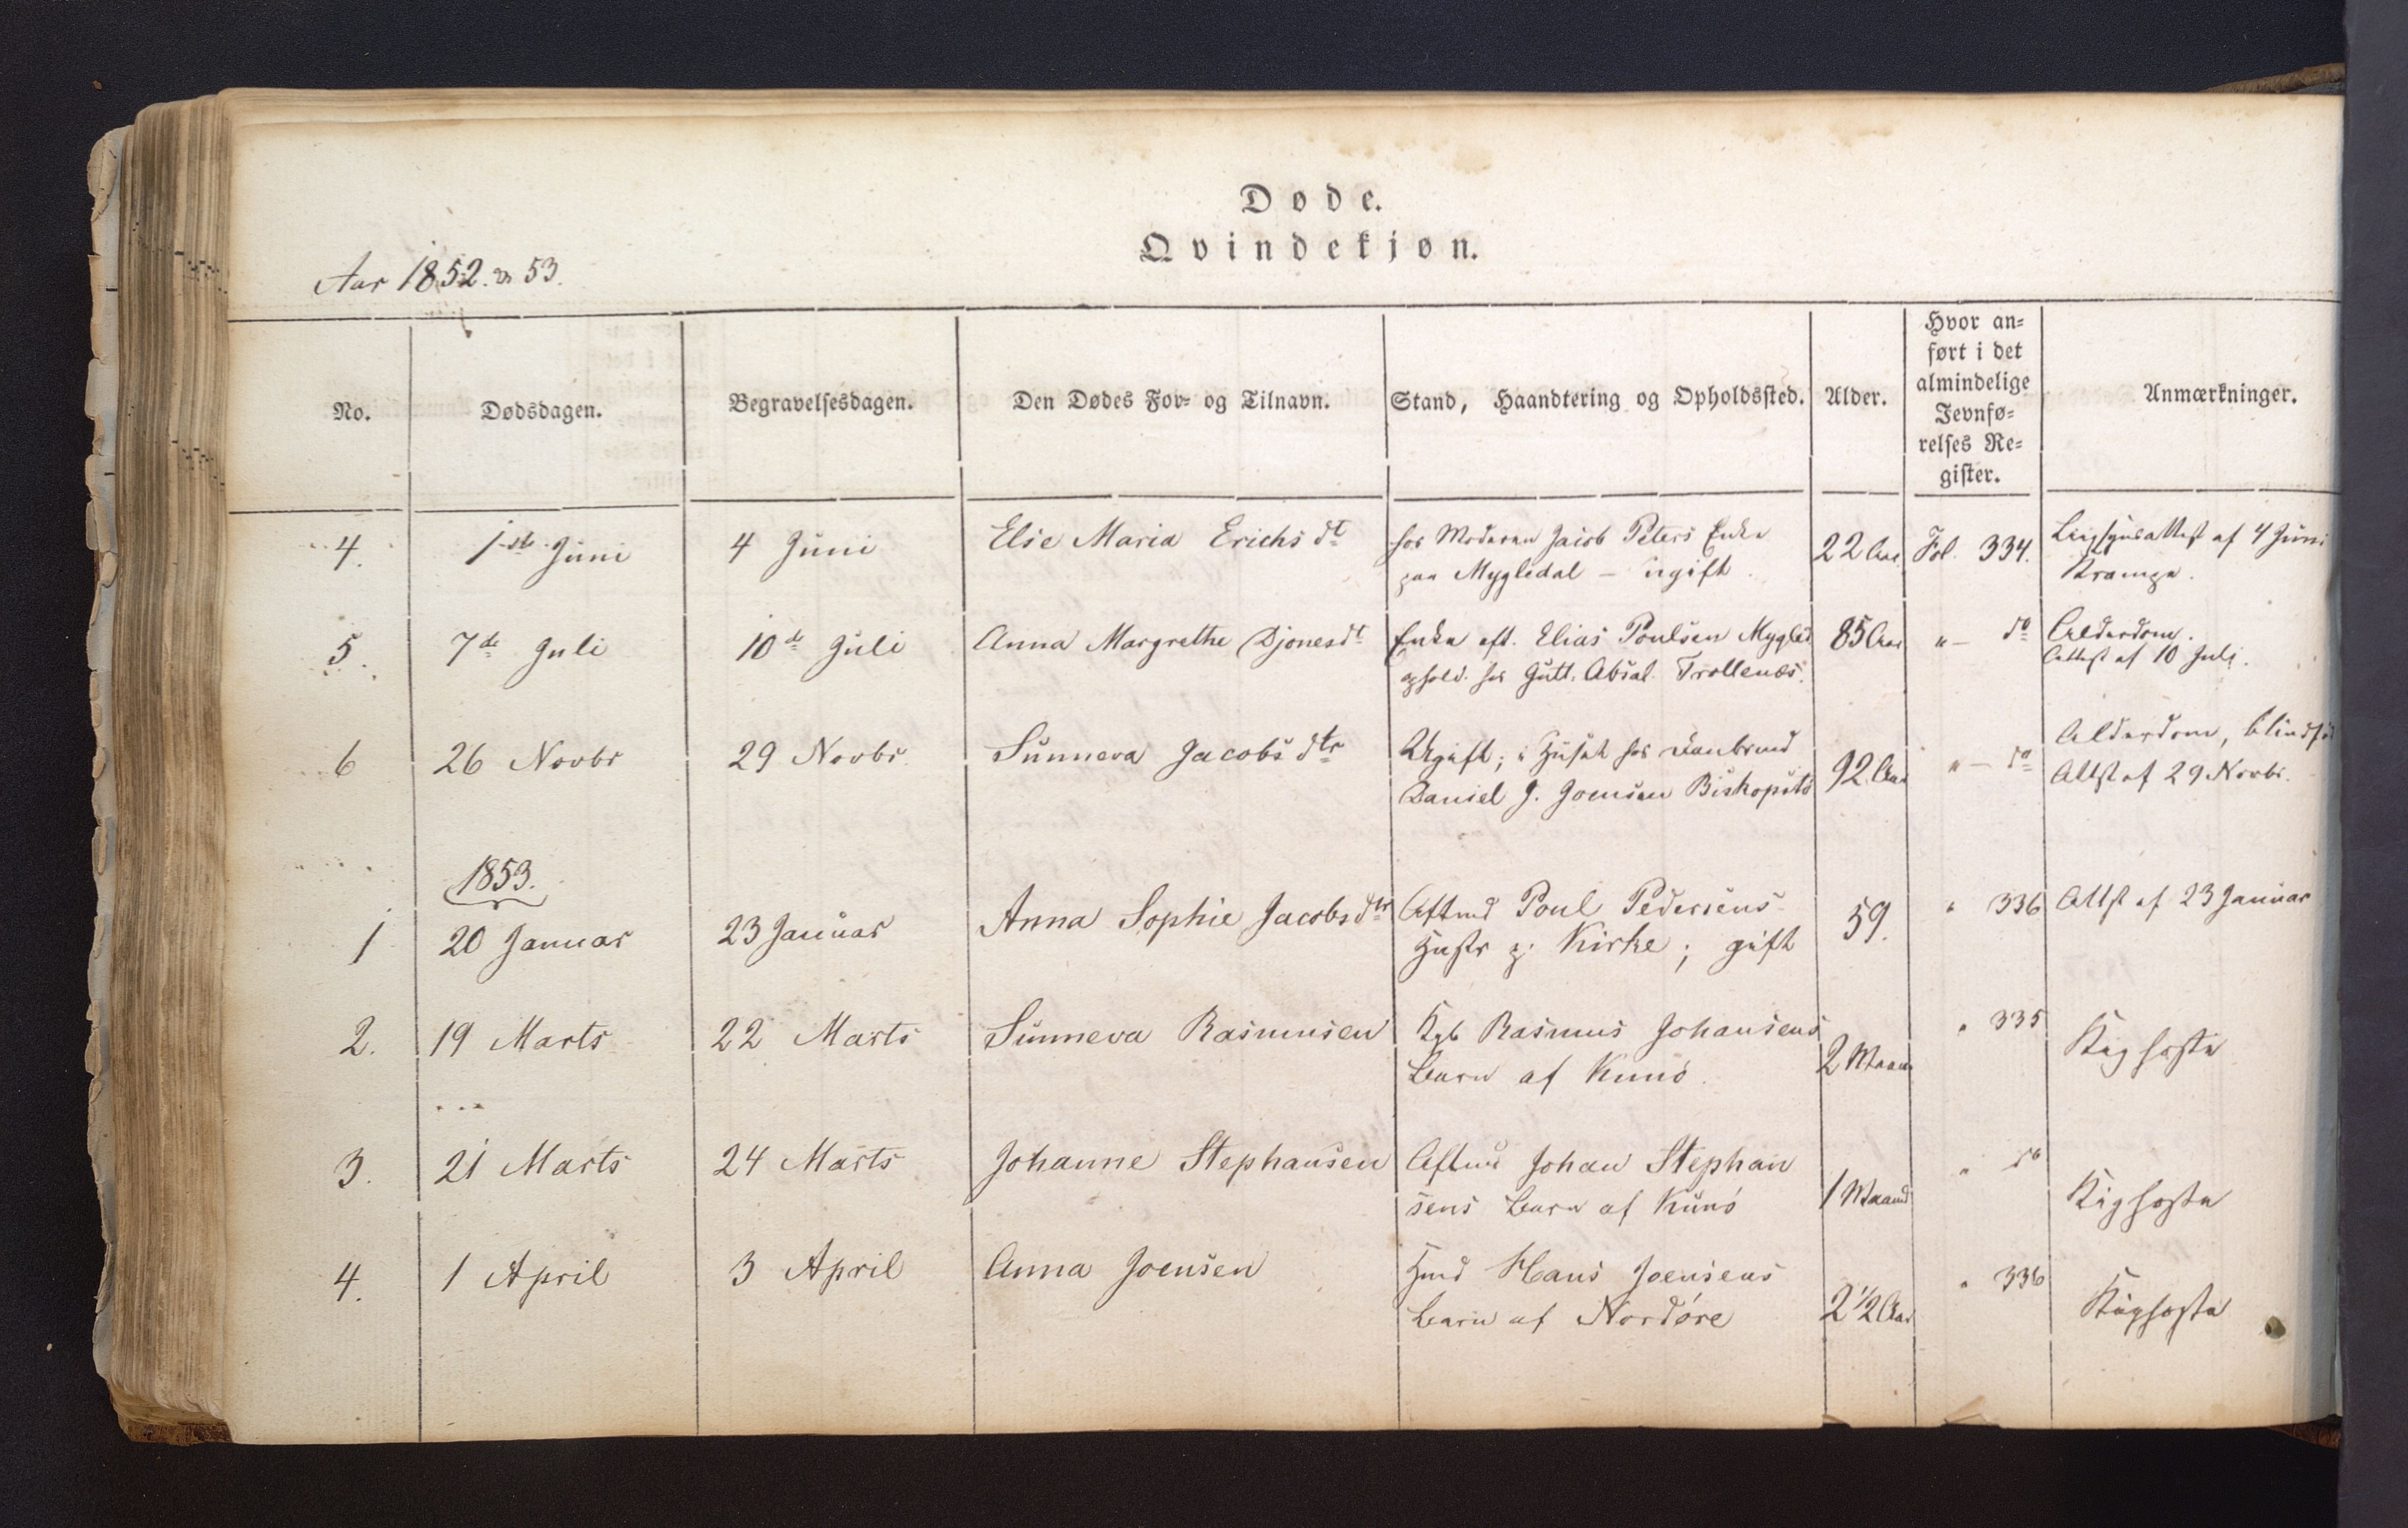 Døde.
Qvindekjøn.
Aar 1852. & 53.
No.
Dødsdagen.
Begravelsesdagen.
Den Dødes For- og Tilnavn.
Stand, Haandtering og Opholdssted.
Alder.
Hvor an-
ført i det
almindelige
Jevnfø-
relses Re-
gister.
Anmærkninger.
4. 1ste Juni 4 Juni Else Maria Erichs dt hos Moderen Jacob Peters Enke 22 Aar Fol. 334. Liigsynsattest af 4 Juni
paa Mygledal – ugift. Krampe.
5. 7de Juli 10de Juli Anna Margrethe Djonesdt Enke eft. Elias Poulsen Mygled 85 Aar " – do Alderdom.
ophold. hos Gutt. Absal. Trollenæs. Attest af 10 Juli.
6 26 Novbr 29 Novbr. Sunneva Jacobs dtr Ugift; i Huset hos 92 Aar " – do Alderdom, blindfød
Daniel J. Joensen Bispopsto Attst af 29 Novbr.
1853.
1 20 Januar 23 Januar Anna Sophie Jacobsdtr Aftmd Poul Pedersens 59. " 336 Attst af 23 Januar
Hustr p. Kirke; gift
2. 19 Marts 22 Marts Sunneva Rasmusen Kgb Rasmus Johansens 2 Maan " 335 Kighoste
Barn af Kunø.
3. 21 Marts 24 Marts Johanne Stephansen Aftmd Johan Stephan 1 Maaned " do Kighoste
sens Barn af Kunø
4. 1 April 3 April Anna Joensen Hmd Hans Joensens 2 1/2 Aar " 336 Kighoste
Barn af Nordøre